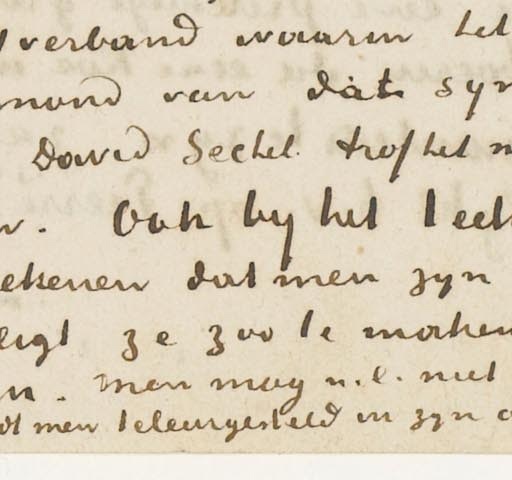 verband waarin het
mond van dat
David Sechel. trof het
Ook by het teek
ekenen dat men zyn
ze zoo te maken
men mag n.l. niet
men teleurgesteld in zyn